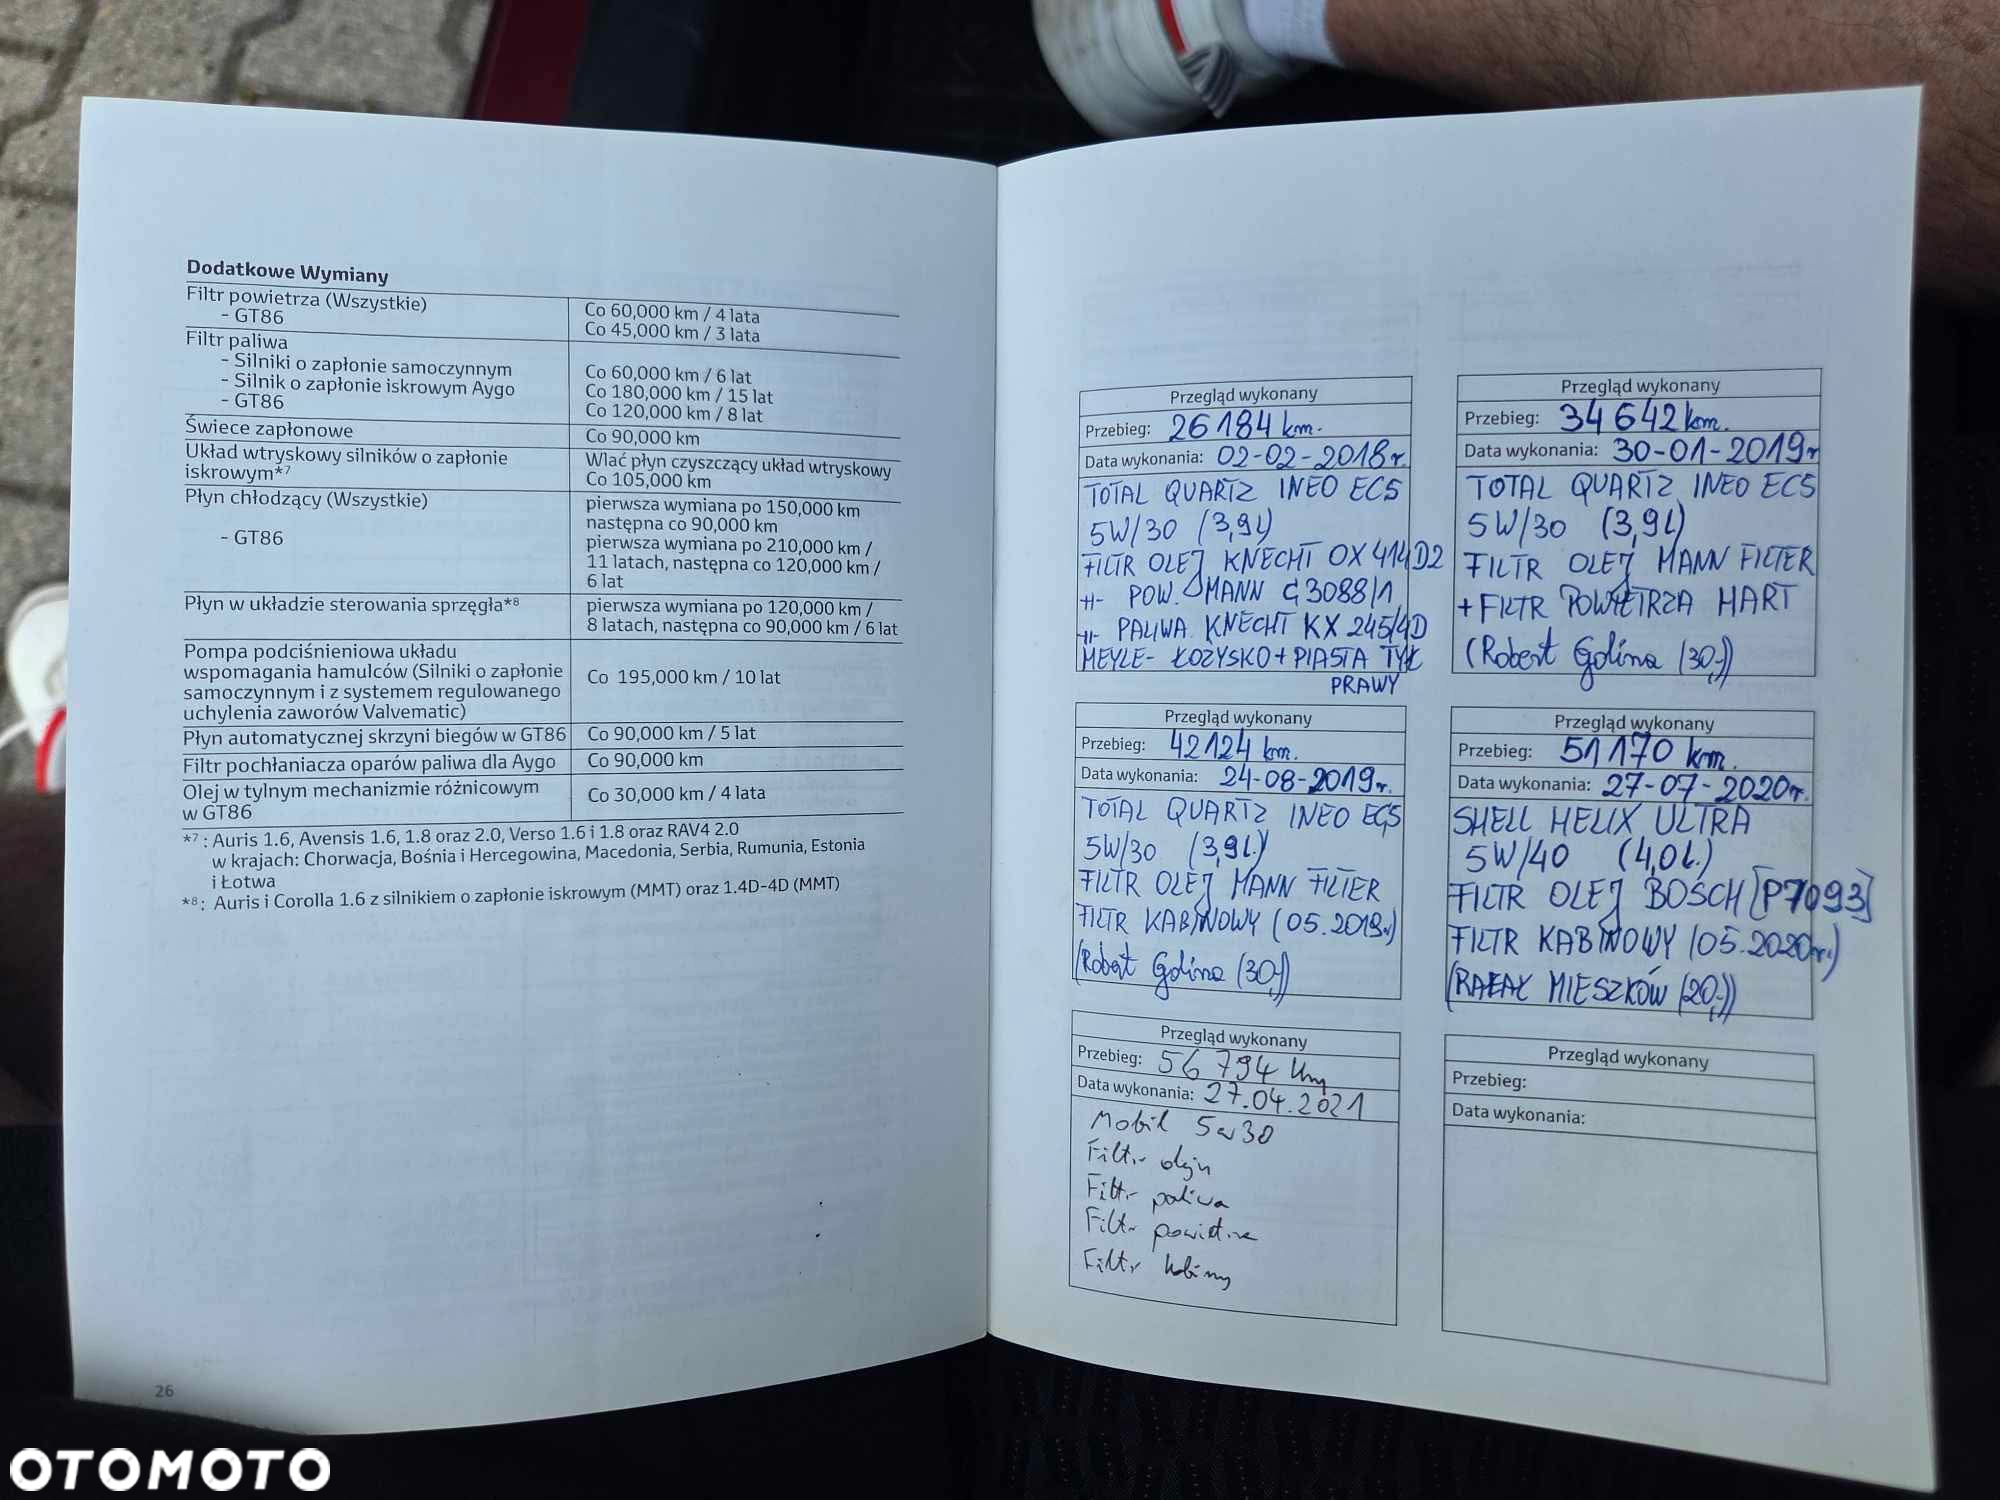 Dodatkowe Wymiany
Filtr powietrza (Wszystkie)
- GT86
Co 60,000 km / 4 lata
Co 45,000 km / 3 lata
Filtr paliwa
- Silniki o zapłonie samoczynnym
- Silnik o zapłonie iskrowym Aygo
- GT86
Co 60,000 km / 6 lat
Co 180,000 km / 15 lat
Co 120,000 km / 8 lat
Świece zapłonowe
Co 90,000 km
Układ wtryskowy silników o zapłonie
iskrowym*7
Wlać płyn czyszczący układ wtryskowy
Co 105,000 km
Płyn chłodzący (Wszystkie)
- GT86
pierwsza wymiana po 150,000 km
następna co 90,000 km
pierwsza wymiana po 210,000 km /
11 latach, następna co 120,000 km /
6 lat
Płyn w układzie sterowania sprzęgła*8
pierwsza wymiana po 120,000 km /
8 latach, następna co 90,000 km / 6 lat
Pompa podciśnieniowa układu
wspomagania hamulców (Silniki o zapłonie
samoczynnym i z systemem regulowanego
uchylenia zaworów Valvematic)
Co 195,000 km / 10 lat
Płyn automatycznej skrzyni biegów w GT86
Co 90,000 km / 5 lat
Filtr pochłaniacza oparów paliwa dla Aygo
Co 90,000 km
Olej w tylnym mechanizmie różnicowym
w GT86
Co 30,000 km / 4 lata
*7 : Auris 1.6, Avensis 1.6, 1.8 oraz 2.0, Verso 1.6 i 1.8 oraz RAV4 2.0
w krajach: Chorwacja, Bośnia i Hercegowina, Macedonia, Serbia, Rumunia, Estonia
i Łotwa
*8 : Auris i Corolla 1.6 z silnikiem o zapłonie iskrowym (MMT) oraz 1.4D-4D (MMT)
26
Przegląd wykonany
Przebieg: 26184 km.
Data wykonania: 02-02-2018r.
TOTAL QUARTZ INEO ECS
5W/30 (3,9L)
FILTR OLEJ KNECHT OX 414D2
-||- POW. MANN C 3088/1
-||- PALIWA KNECHT KX 245/4D
MEYLE- ŁOŻYSKO + PIASTA TYŁ
PRAWY
Przegląd wykonany
Przebieg: 34 642 km.
Data wykonania: 30-01-2019r
TOTAL QUARTZ INEO ECS
5W/30 (3,9L)
FILTR OLEJ MANN FILTER
+ FILTR POWIETRZA HART
(Robert Golina (30,-))
Przegląd wykonany
Przebieg: 42124 km.
Data wykonania: 24-08-2019r.
TOTAL QUARTZ INEO ECS
5W/30 (3,9L.)
FILTR OLEJ MANN FILTER
FILTR KABINOWY (05.2019r)
(Robert Golina (30,-))
Przegląd wykonany
Przebieg: 51170 km.
Data wykonania: 27-07-2020r.
SHELL HELIX ULTRA
5W/40 (4,0L.)
FILTR OLEJ BOSCH [P7093]
FILTR KABINOWY (05.2020r.)
(RAFAŁ MIESZKÓW (20,-))
Przegląd wykonany
Przebieg: 56 794 km
Data wykonania: 27.04.2021
Mobil 5w30
Filtr oleju
Filtr paliwa
Filtr powietrza
Filtr kabiny
Przegląd wykonany
Przebieg:
Data wykonania:
OTOMOTO